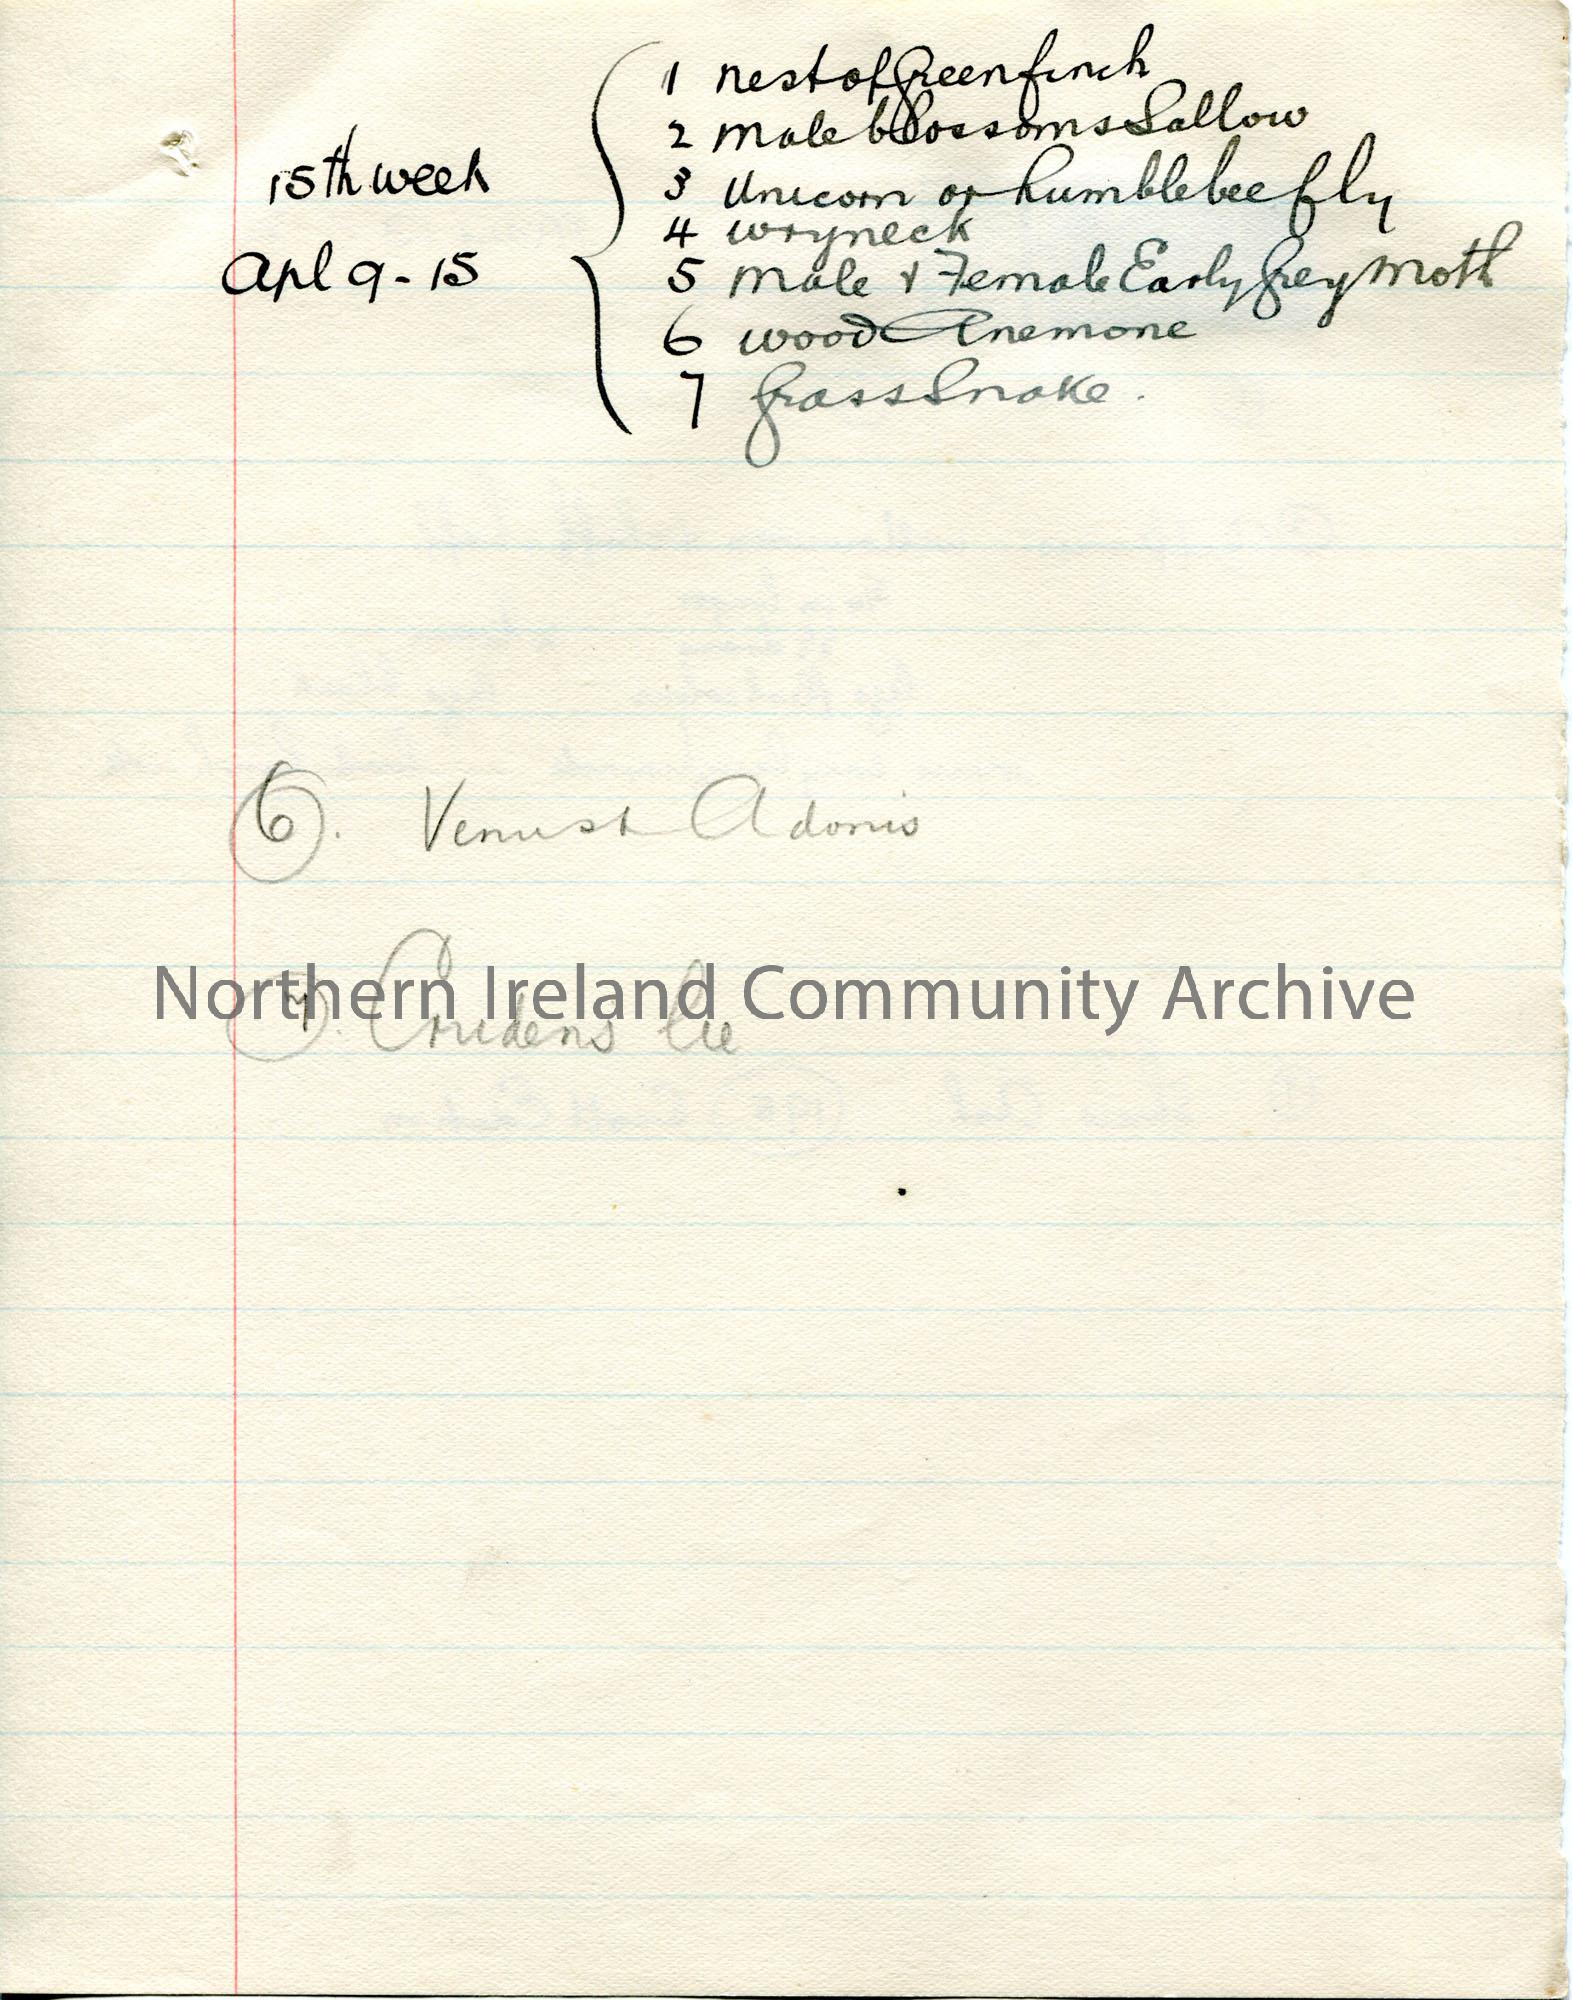 1 nest of Greenfinch
2 male blossoms Sallow
15th week
3 Unicorn or humble bee fly
4 wryneck
Apl 9 - 15
5 male & Female Early Grey Moth
6 wood Anemone
7 Grass Snake.
6. Venus & Adonis
Northern Ireland Community Archive
7.